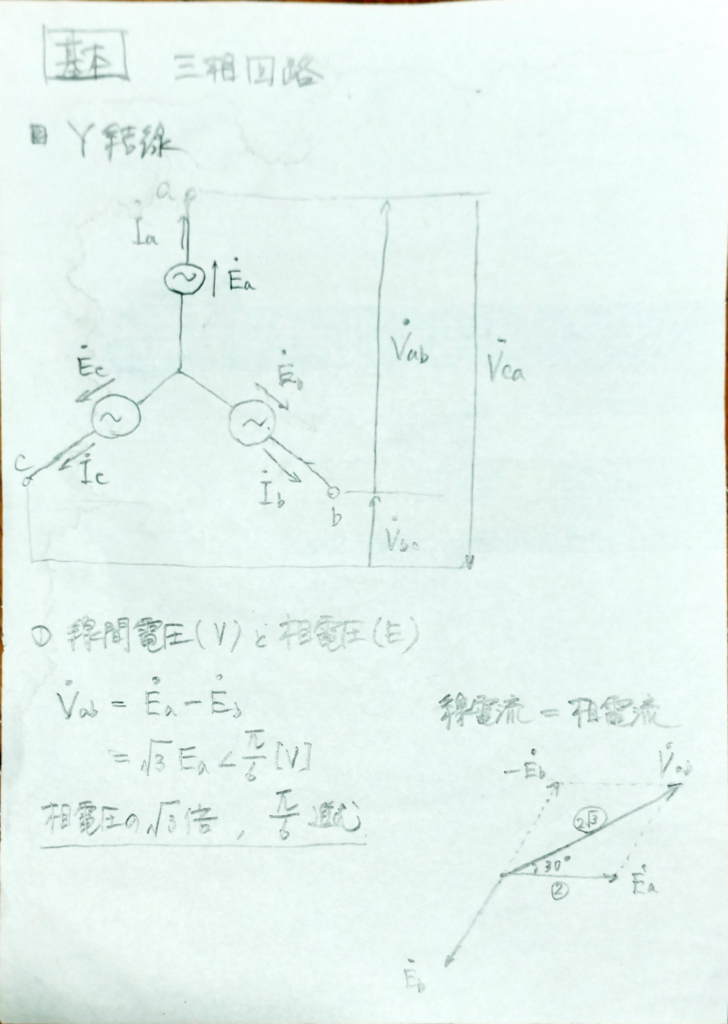 基本 三相回路
Y結線
a
İa
Ėa
Ėc
Ėb
V̇ab
V̇ca
c
İc
İb
b
① 線間電圧(V)と相電圧(E)
V̇ab = Ėa - Ėb
= √3 Ea∠π/6 [V]
相電圧の√3倍, π/6 進む
線電流 = 相電流
-Ėb
V̇ab
2√3
30°
②
Ėa
Ėb